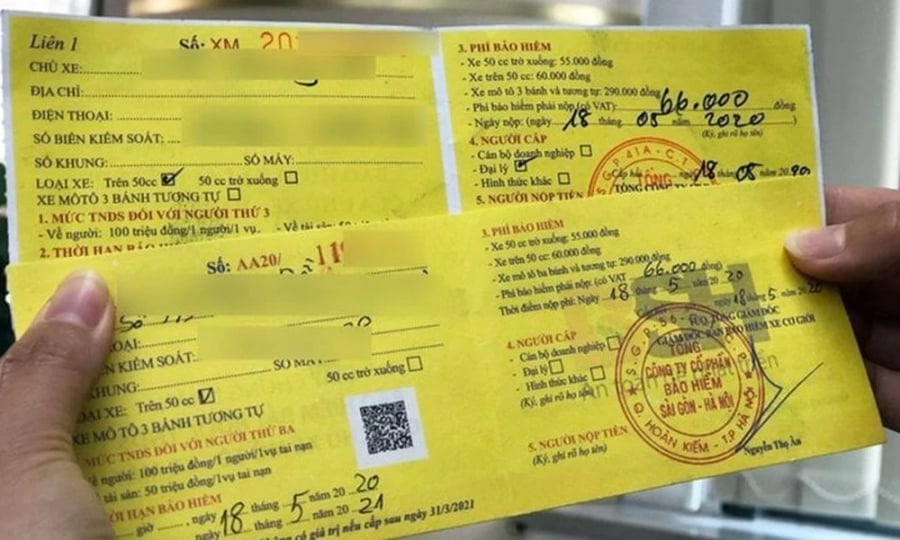 Liên 1
Số: XM 20
CHỦ XE:
ĐỊA CHỈ:
ĐIỆN THOẠI:
SỐ BIÊN KIỂM SOÁT:
SỐ KHUNG: SỐ MÁY:
LOẠI XE: Trên 50cc 50 cc trở xuống
XE MÔTÔ 3 BÁNH TƯƠNG TỰ
1. MỨC TNDS ĐỐI VỚI NGƯỜI THỨ 3
- Về người: 100 triệu đồng/1 người/1 vụ. - Về tài sản: 50
2. THỜI HẠN BẢO
3. PHÍ BẢO HIỂM
- Xe 50 cc trở xuống: 55.000 đồng
- Xe trên 50 cc: 60.000 đồng
- Xe mô tô 3 bánh và tương tự: 290.000 đồng
- Phí bảo hiểm phải nộp (có VAT): 66.000 đồng
- Ngày nộp: (ngày 18 tháng 05 năm 2020)
(Ký, ghi rõ họ tên)
4. NGƯỜI CẤP
- Cán bộ doanh nghiệp
- Đại lý
- Hình thức khác
ngày 18 tháng 05 năm 20
5. NGƯỜI NỘP TIỀN
TỔNG
Số: AA20/
OẠI:
ÊN KIỂM SOÁT:
KHUNG: SỐ MÁY
OẠI XE: Trên 50 cc 50 cc trở xuống
XE MÔ TÔ 3 BÁNH TƯƠNG TỰ
MỨC TNDS ĐỐI VỚI NGƯỜI THỨ BA
Về người: 100 triệu đồng/1 người/1vụ tai nạn
tài sản: 50 triệu đồng/1 vụ tai nạn
HỜI HẠN BẢO HIỂM
giờ , ngày 18 tháng 5 năm 20 20
ngày 18 tháng 5 năm 20 21
có giá trị nếu cấp sau ngày 31/3/2021
3. PHÍ BẢO HIỂM
- Xe 50 cc trở xuống: 55.000 đồng
- Xe trên 50 cc: 60.000 đồng
- Xe mô tô ba bánh và tương tự: 290.000 đồng
- Phí bảo hiểm phải nộp: (có VAT 66.000 đồng)
Thời điểm nộp phí: Ngày 18 tháng 5 năm 20 20
ngày 18 tháng 5 năm 20 20
TỔNG GIÁM ĐỐC
GIÁM ĐỐC BAN BẢO HIỂM XE CƠ GIỚI
4. NGƯỜI CẤP
- Cán bộ doanh nghiệp
- Đại lý
- Hình thức khác
(Ký, ghi rõ họ tên)
TỔNG
CÔNG TY CỔ PHẦN
BẢO HIỂM
SÀI GÒN - HÀ NỘI
Q. HOÀN KIẾM - T.P HÀ NỘI
5. NGƯỜI NỘP TIỀN
(Ký, ghi rõ họ tên)
Nguyễn Thọ Ân